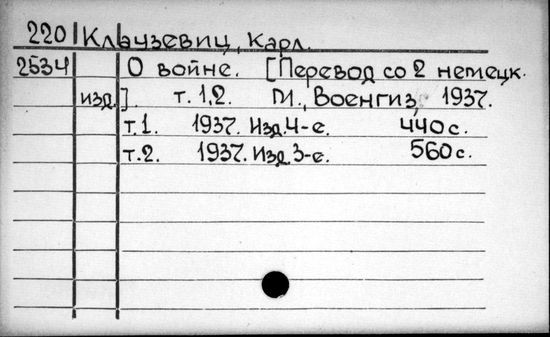 220 Клаузевиц, Карл.
2534 О войне. [Перевод со 2 немецк.
изд]. т. 1,2. М., Военгиз, 1937.
т.1. 1937. Изд. 4-е. 440 с.
т.2. 1937. Изд. 3-е. 560 с.